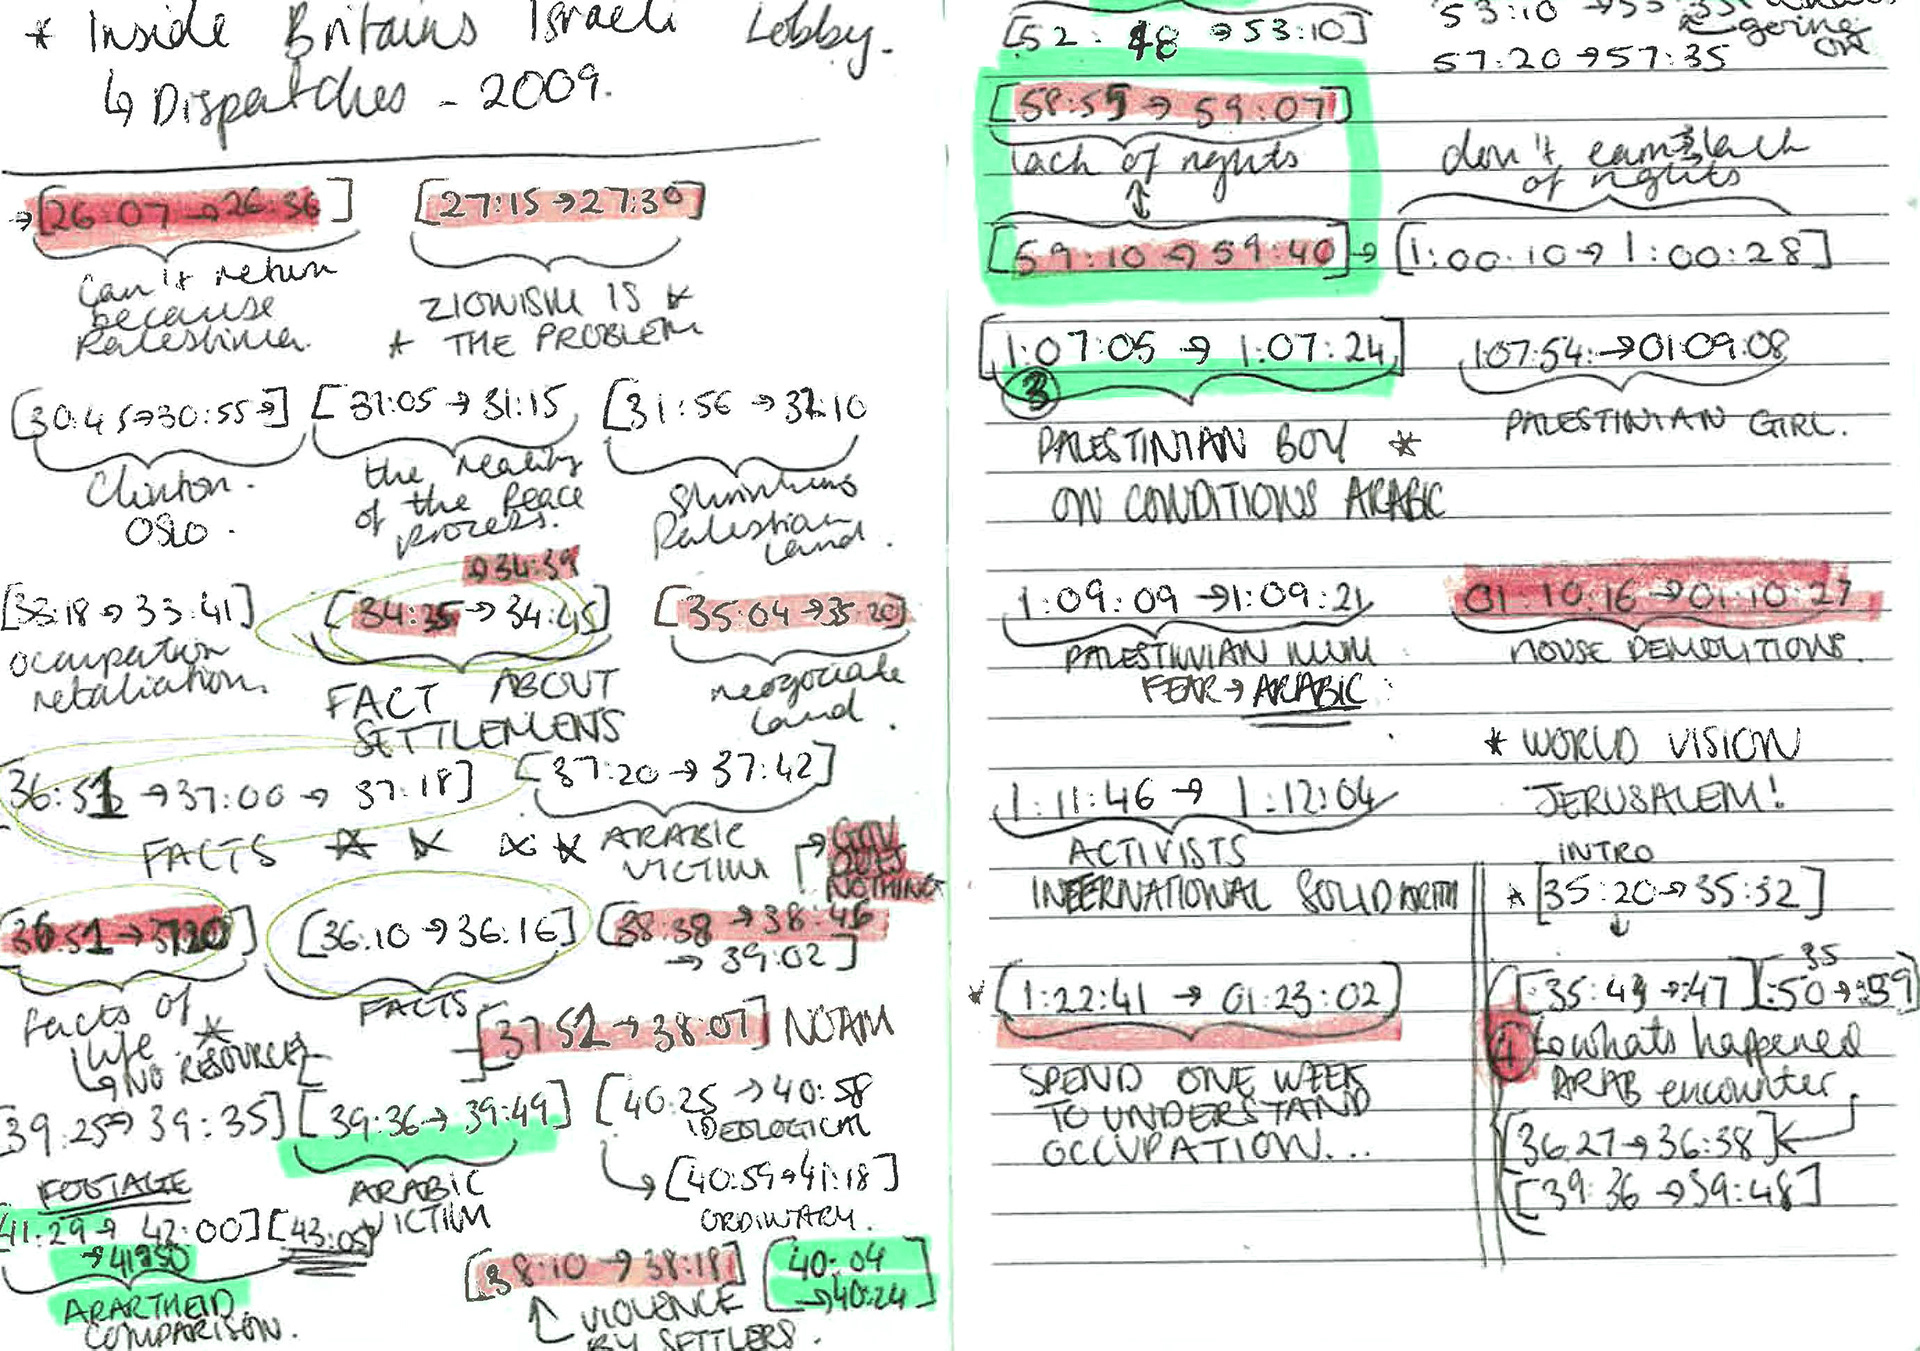 * Inside Britains Israeli Lobby.
↳ Dispatches - 2009.
→ [26:07 → 26:36] [27:15 → 27:30]
Can't return
because
Palestinian.
ZIONISM IS *
* THE PROBLEM
[30:45 → 30:55 →] [31:05 → 31:15 [31:56 → 32:10
Clinton.
OSLO.
the reality
of the Peace
process.
Shrinking
Palestian
land.
→ 34:39
[33:18 → 33:41] [34:35 → 34:45] [35:04 → 35:20]
occupation
retaliation.
FACT ABOUT
SETTLEMENTS
neogociate
land.
36:51 → 37:00 → 37:18] [37:20 → 37:42]
FACTS * * * *
ARABIC
VICTIM
→ GOV
DOES
NOTHING
36:51 → 37:20] [36:10 → 36:16] [38:38 → 38:46
→ 39:02]
facts of
life *
↳ NO RESOURCES
FACTS
[37:51 → 38:07] NOAM
39:25 → 39:35] [39:36 → 39:49] [40:25 → 40:58
IDEOLOGICAL
FOOTAGE
ARABIC
VICTIM
↳ [40:59 → 41:18]
ORDINARY.
41:29 → 42:00] [43:05]
→ 41:50
APARTHEID
COMPARISON.
[38:10 → 38:18]
↑ VIOLENCE
BY SETTLERS.
[40:04
→ 40:24]
[52:48 → 53:10]
53:10 →
going
on
57:20 → 57:35
[58:55 → 59:07]
lack of rights
↕
don't earn lack
of rights
[59:10 → 59:40] → [1:00:10 → 1:00:28]
[1:07:05 → 1:07:24] 1:07:54: → 01:09:08
3
PALESTINIAN BOY *
ON CONDITIONS ARABIC
PALESTINIAN GIRL.
1:09:09 → 1:09:21 01:10:16 → 01:10:27
PALESTINIAN MUM
FEAR → ARABIC
HOUSE DEMOLITIONS.
* WORLD VISION
JERUSALEM!
1:11:46 → 1:12:04
ACTIVISTS
INTERNATIONAL SOLIDARITY
INTRO
* [35:20 → 35:32]
↓
* [1:22:41 → 01:23:02]
SPEND ONE WEEK
TO UNDERSTAND
OCCUPATION...
35
[:35:43 → :47] [:50 → :59]
↳ whats happened
ARAB encounter
[36:27 → 36:38] ←
[39:36 → 39:48]